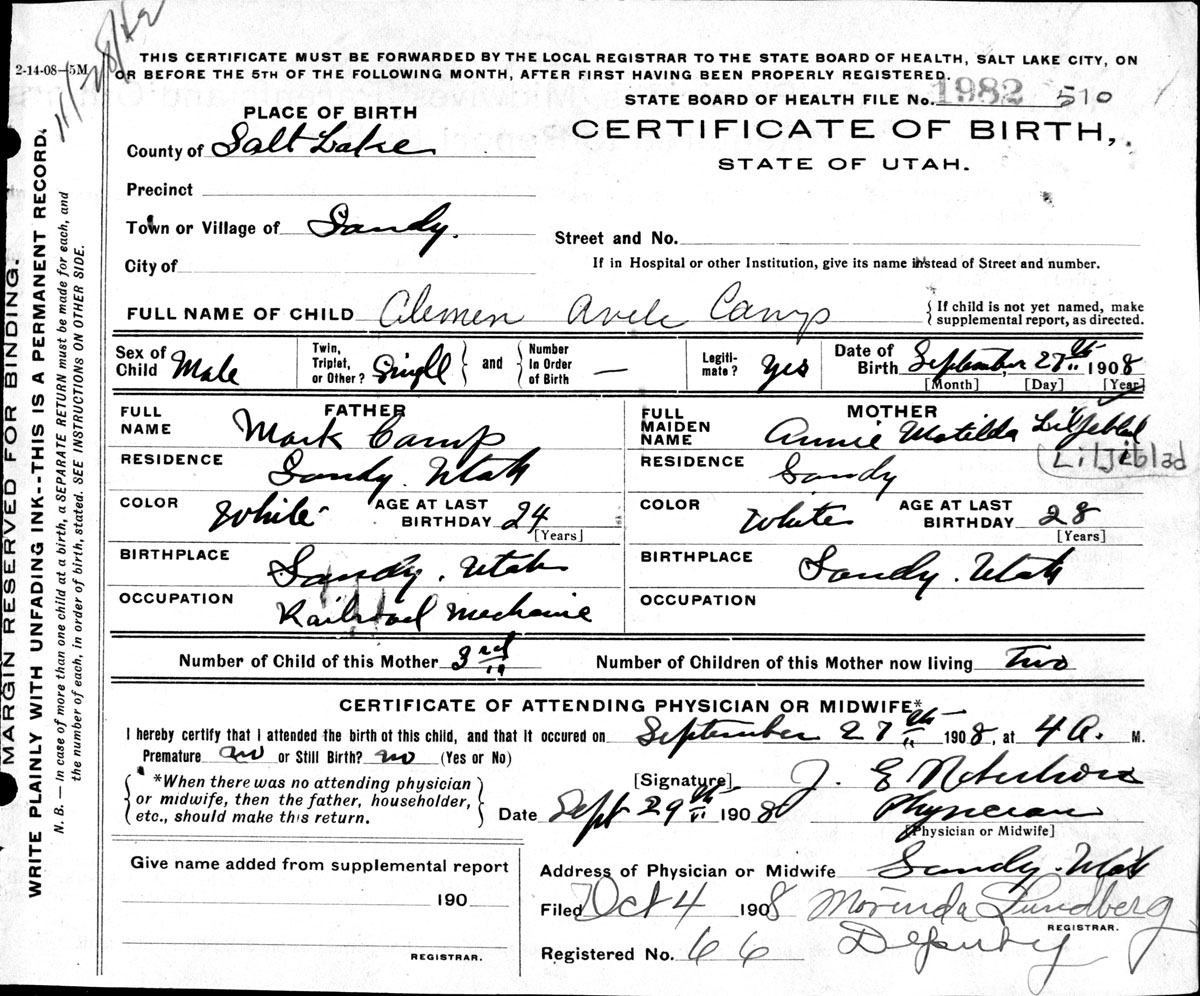 11/28/42
2-14-08-5M
THIS CERTIFICATE MUST BE FORWARDED BY THE LOCAL REGISTRAR TO THE STATE BOARD OF HEALTH, SALT LAKE CITY, ON
OR BEFORE THE 5TH OF THE FOLLOWING MONTH, AFTER FIRST HAVING BEEN PROPERLY REGISTERED.
STATE BOARD OF HEALTH FILE No. 1982 510
PLACE OF BIRTH
CERTIFICATE OF BIRTH,
STATE OF UTAH.
County of Salt Lake
Precinct
Town or Village of Sandy.
Street and No.
City of
If in Hospital or other Institution, give its name instead of Street and number.
FULL NAME OF CHILD Clemen Camp
If child is not yet named, make
supplemental report, as directed.
Sex of
Child Male
Twin,
Triplet,
or Other? Single
and
Number
In Order
of Birth —
Legiti-
mate? Yes
Date of
Birth September 27th 1908
[Month] [Day] [Year]
FATHER
FULL
NAME Mark Camp
RESIDENCE Sandy. Utah
COLOR White
AGE AT LAST
BIRTHDAY 24
[Years]
BIRTHPLACE Sandy. Utah
OCCUPATION Railroad Mechanic
MOTHER
FULL
MAIDEN
NAME Annie Matilda Liljeblad
Liljeblad
RESIDENCE Sandy
COLOR White
AGE AT LAST
BIRTHDAY 28
[Years]
BIRTHPLACE Sandy. Utah
OCCUPATION
Number of Child of this Mother 3rd
Number of Children of this Mother now living Two
CERTIFICATE OF ATTENDING PHYSICIAN OR MIDWIFE*
I hereby certify that I attended the birth of this child, and that it occured on September 27th 1908, at 4 A. M.
Premature no or Still Birth? no (Yes or No)
*When there was no attending physician
or midwife, then the father, householder,
etc., should make this return.
[Signature] J. E
Date Sept 29th 1908
Physician
[Physician or Midwife]
Give name added from supplemental report
190
REGISTRAR.
Address of Physician or Midwife Sandy. Utah
Filed Oct 4 1908 Morinda Lundberg
REGISTRAR.
Registered No. 66 Deputy
MARGIN RESERVED FOR BINDING.
WRITE PLAINLY WITH UNFADING INK--THIS IS A PERMANENT RECORD.
N. B. — In case of more than one child at a birth, a SEPARATE RETURN must be made for each, and
the number of each, in order of birth, stated. SEE INSTRUCTIONS ON OTHER SIDE.